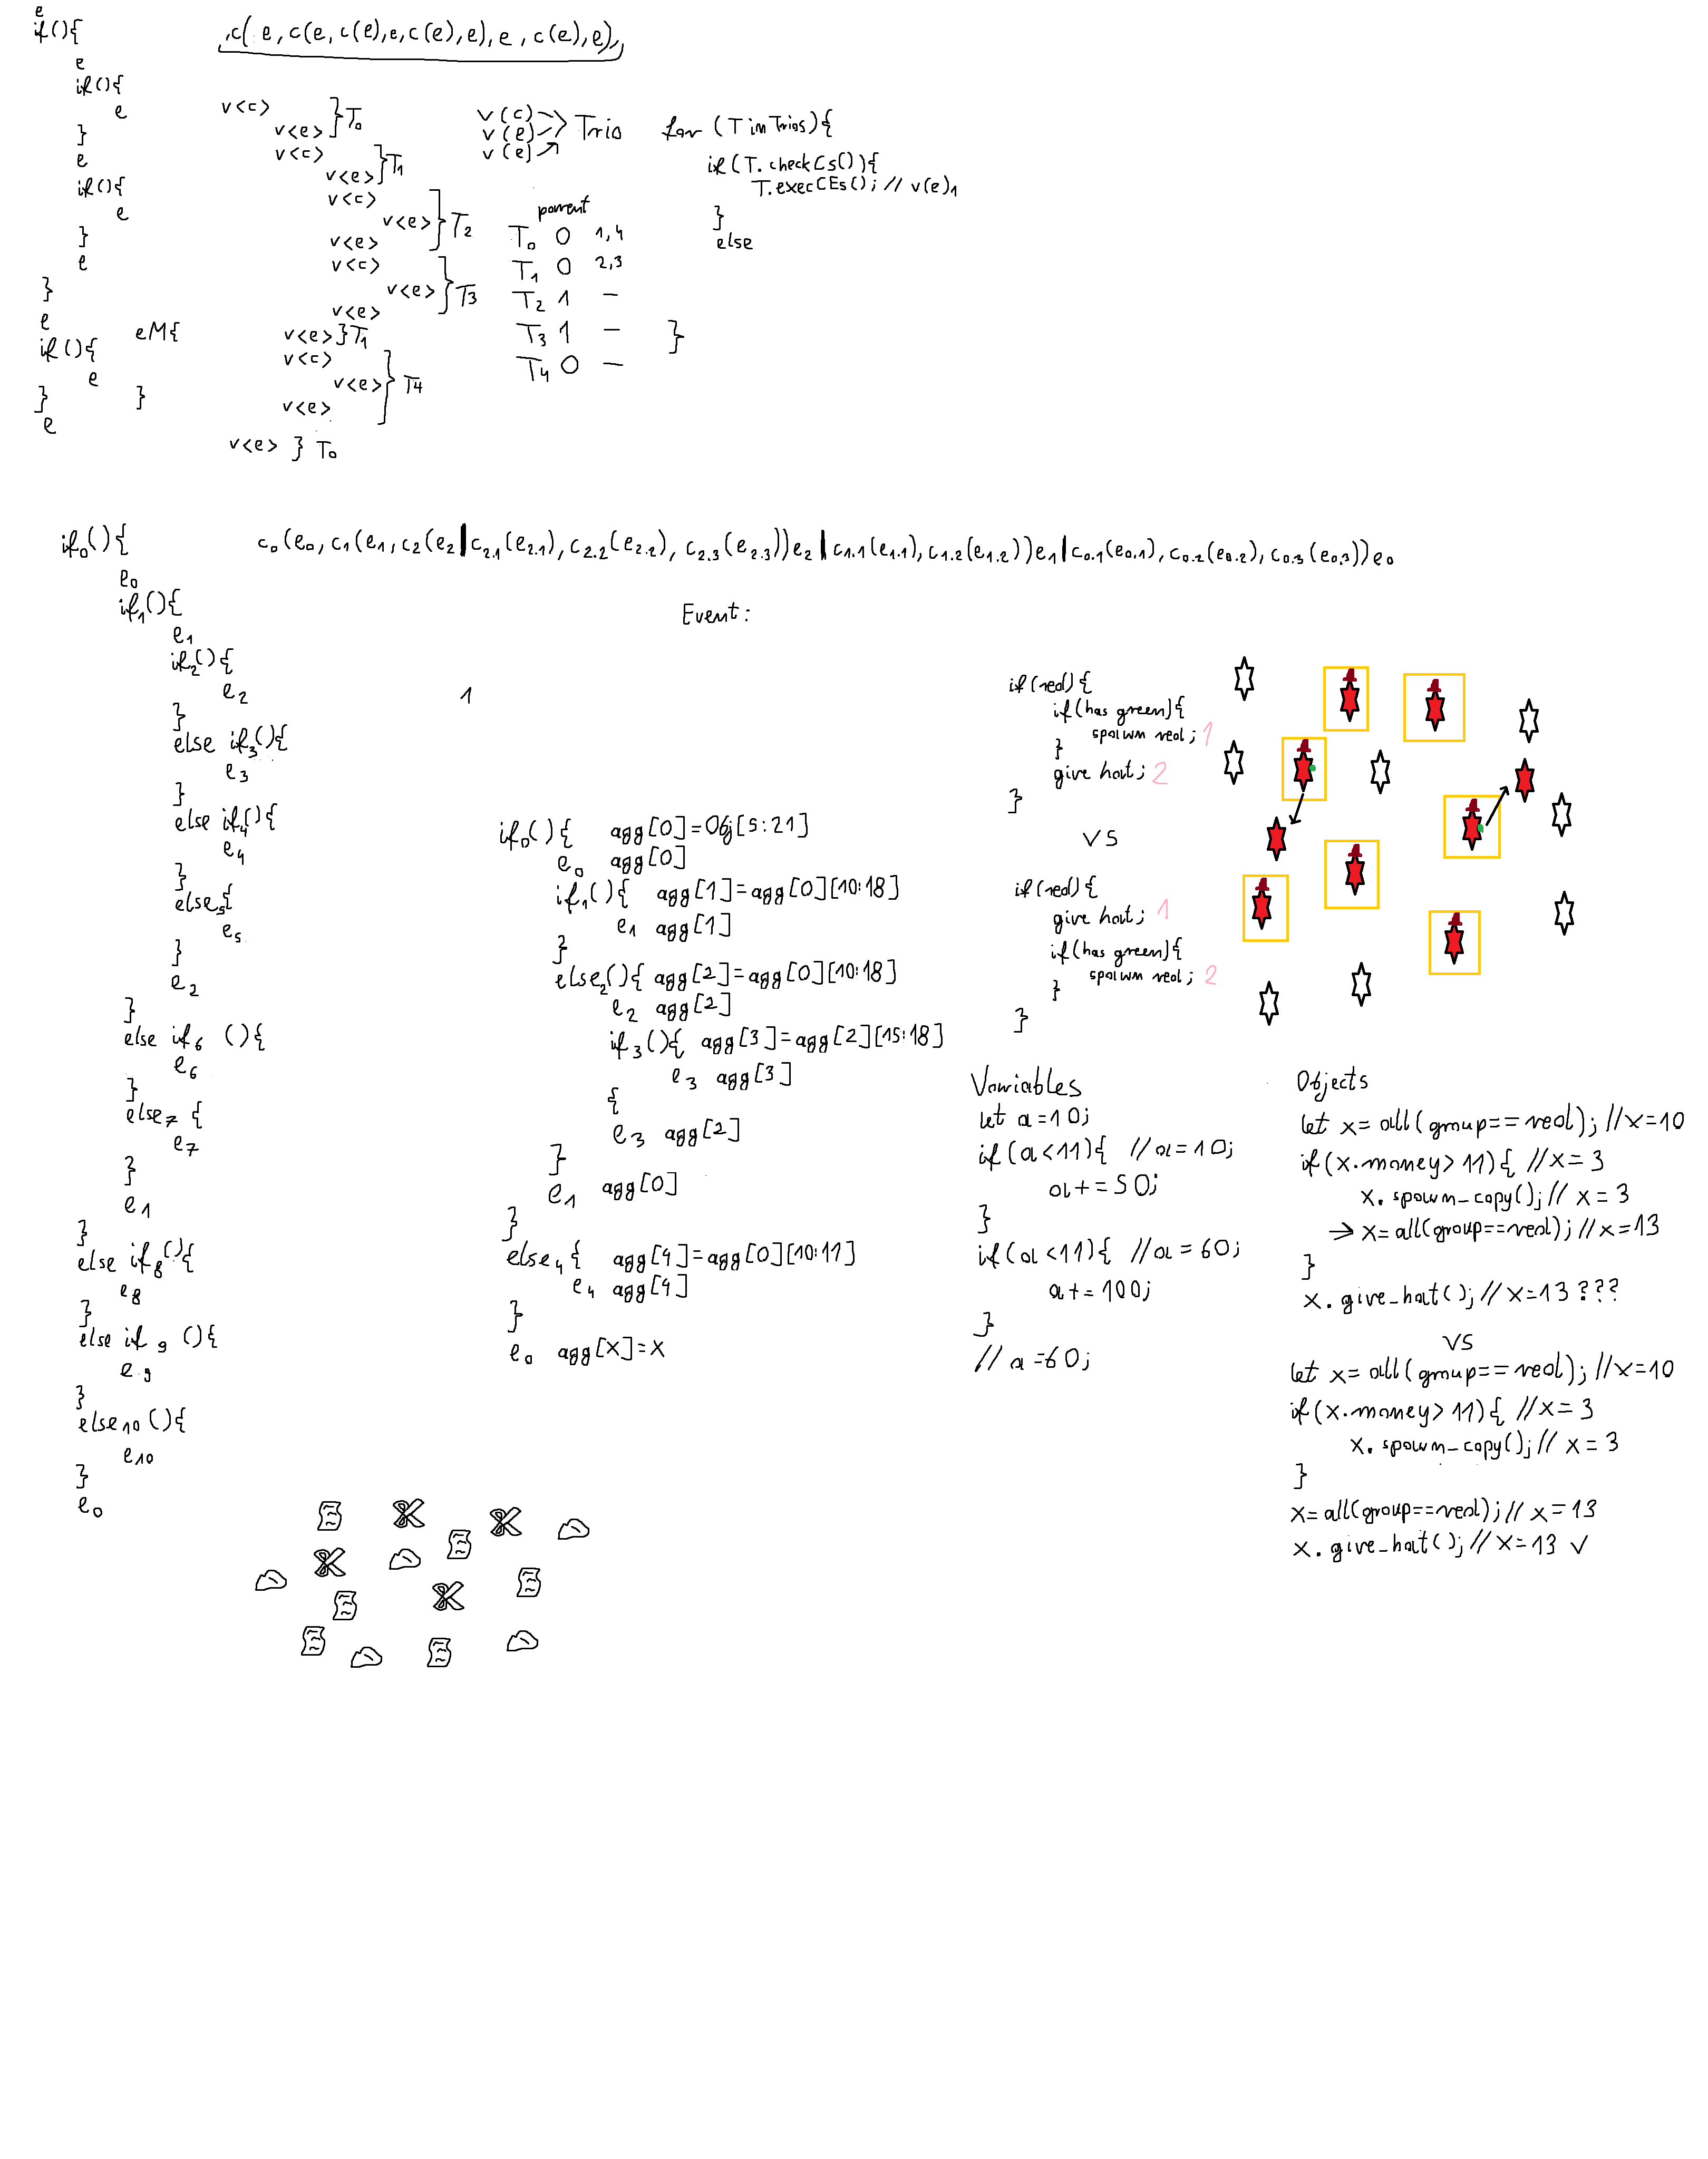 e
if(){
e
if(){
e
}
e
if(){
e
}
e
}
e
if(){
e
}
e
eM{
}
,c( e, c(e, c(e),e,c(e),e), e , c(e),e),
v<c>
v<e> } T0
v<c>
v<e> } T1
v<c>
v<e> } T2
v<e>
v<c>
v<e> } T3
v<e>
v<e> } T1
v<c>
v<e> } T4
v<e>
v<e> } T0
v(c)
v(e) Trio
v(e)
parent
T0 0 1,4
T1 0 2,3
T2 1 —
T3 1 —
T4 0 —
for (T in Trios){
if(T.checkCs()){
T.execCEs(); // v(e)1
}
else
}
c0(e0, c1(e1, c2(e2|c2.1(e2.1), c2.2(e2.2), c2.3(e2.3))e2|c1.1(e1.1), c1.2(e1.2))e1|c0.1(e0.1), c0.2(e0.2), c0.3(e0.3))e0
if0(){
e0
if1(){
e1
if2(){
e2
}
else if3(){
e3
}
else if4(){
e4
}
else5{
e5
}
e2
}
else if6 (){
e6
}
else7 {
e7
}
e1
}
else if8(){
e8
}
else if 9 (){
e9
}
else10(){
e10
}
e0
Event:
1
if0(){ agg[0]=Obj[5:21]
e0 agg[0]
if1(){ agg[1]=agg[0][10:18]
e1 agg[1]
}
else2(){ agg[2]=agg[0][10:18]
e2 agg[2]
if3(){ agg[3]=agg[2][15:18]
e3 agg[3]
{
e3 agg[2]
}
e1 agg[0]
}
else4{ agg[4]=agg[0][10:11]
e4 agg[4]
}
e0 agg[x]=x
if(red){
if(has green){
spawn red; 1
}
give hat; 2
}
VS
if(red){
give hat; 1
if(has green){
spawn red; 2
}
}
Variables
let a=10;
if(a<11){ //a=10;
a+=50;
}
if(a<11){ //a=60;
a+=100;
}
// a=60;
Objects
let x= all(group==red); //x=10
if(x.money>11){ //x=3
x.spawn_copy(); // x=3
→ x=all(group==red); //x=13
}
x.give_hat(); // x=13 ???
VS
let x= all(group==red); //x=10
if(x.money>11){ //x=3
x.spawn_copy(); // x=3
}
x=all(group==red); // x=13
x.give_hat(); // x=13 ✓